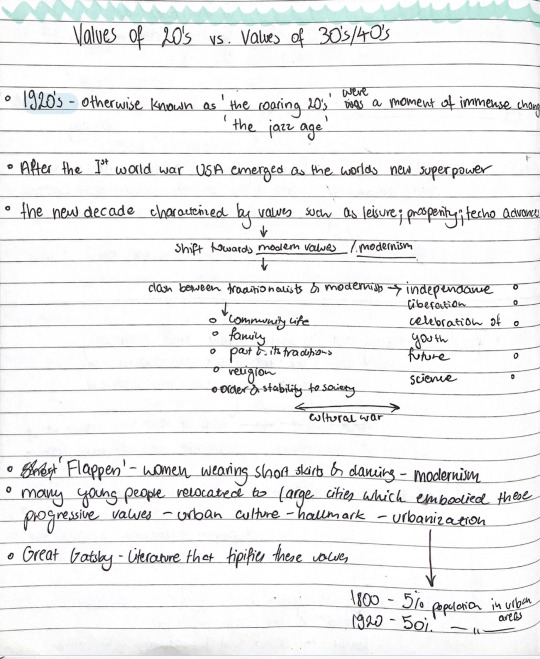 Values of 20's vs. Values of 30's/40's
1920's - otherwise known as 'the roaring 20's' were a moment of immense chang
'the jazz age'
After the Ist world war USA emerged as the worlds new superpower
the new decade characterized by values such as leisure; prosperity; techo advances
shift towards modern values / modernism
clash between traditionalists & modernists → independance
liberation
community life celebration of
family youth
past & its traditions future
religion science
order & stability to society
cultural war
'Flappers' - women wearing short skirts & dancing - modernism
many young people relocated to large cities which embodied these
progressive values - urban culture - hallmark - urbanization
Great Gatsby - Literature that tipifies these values
1800 - 5% population in urban
areas
1920 - 50%. — " —